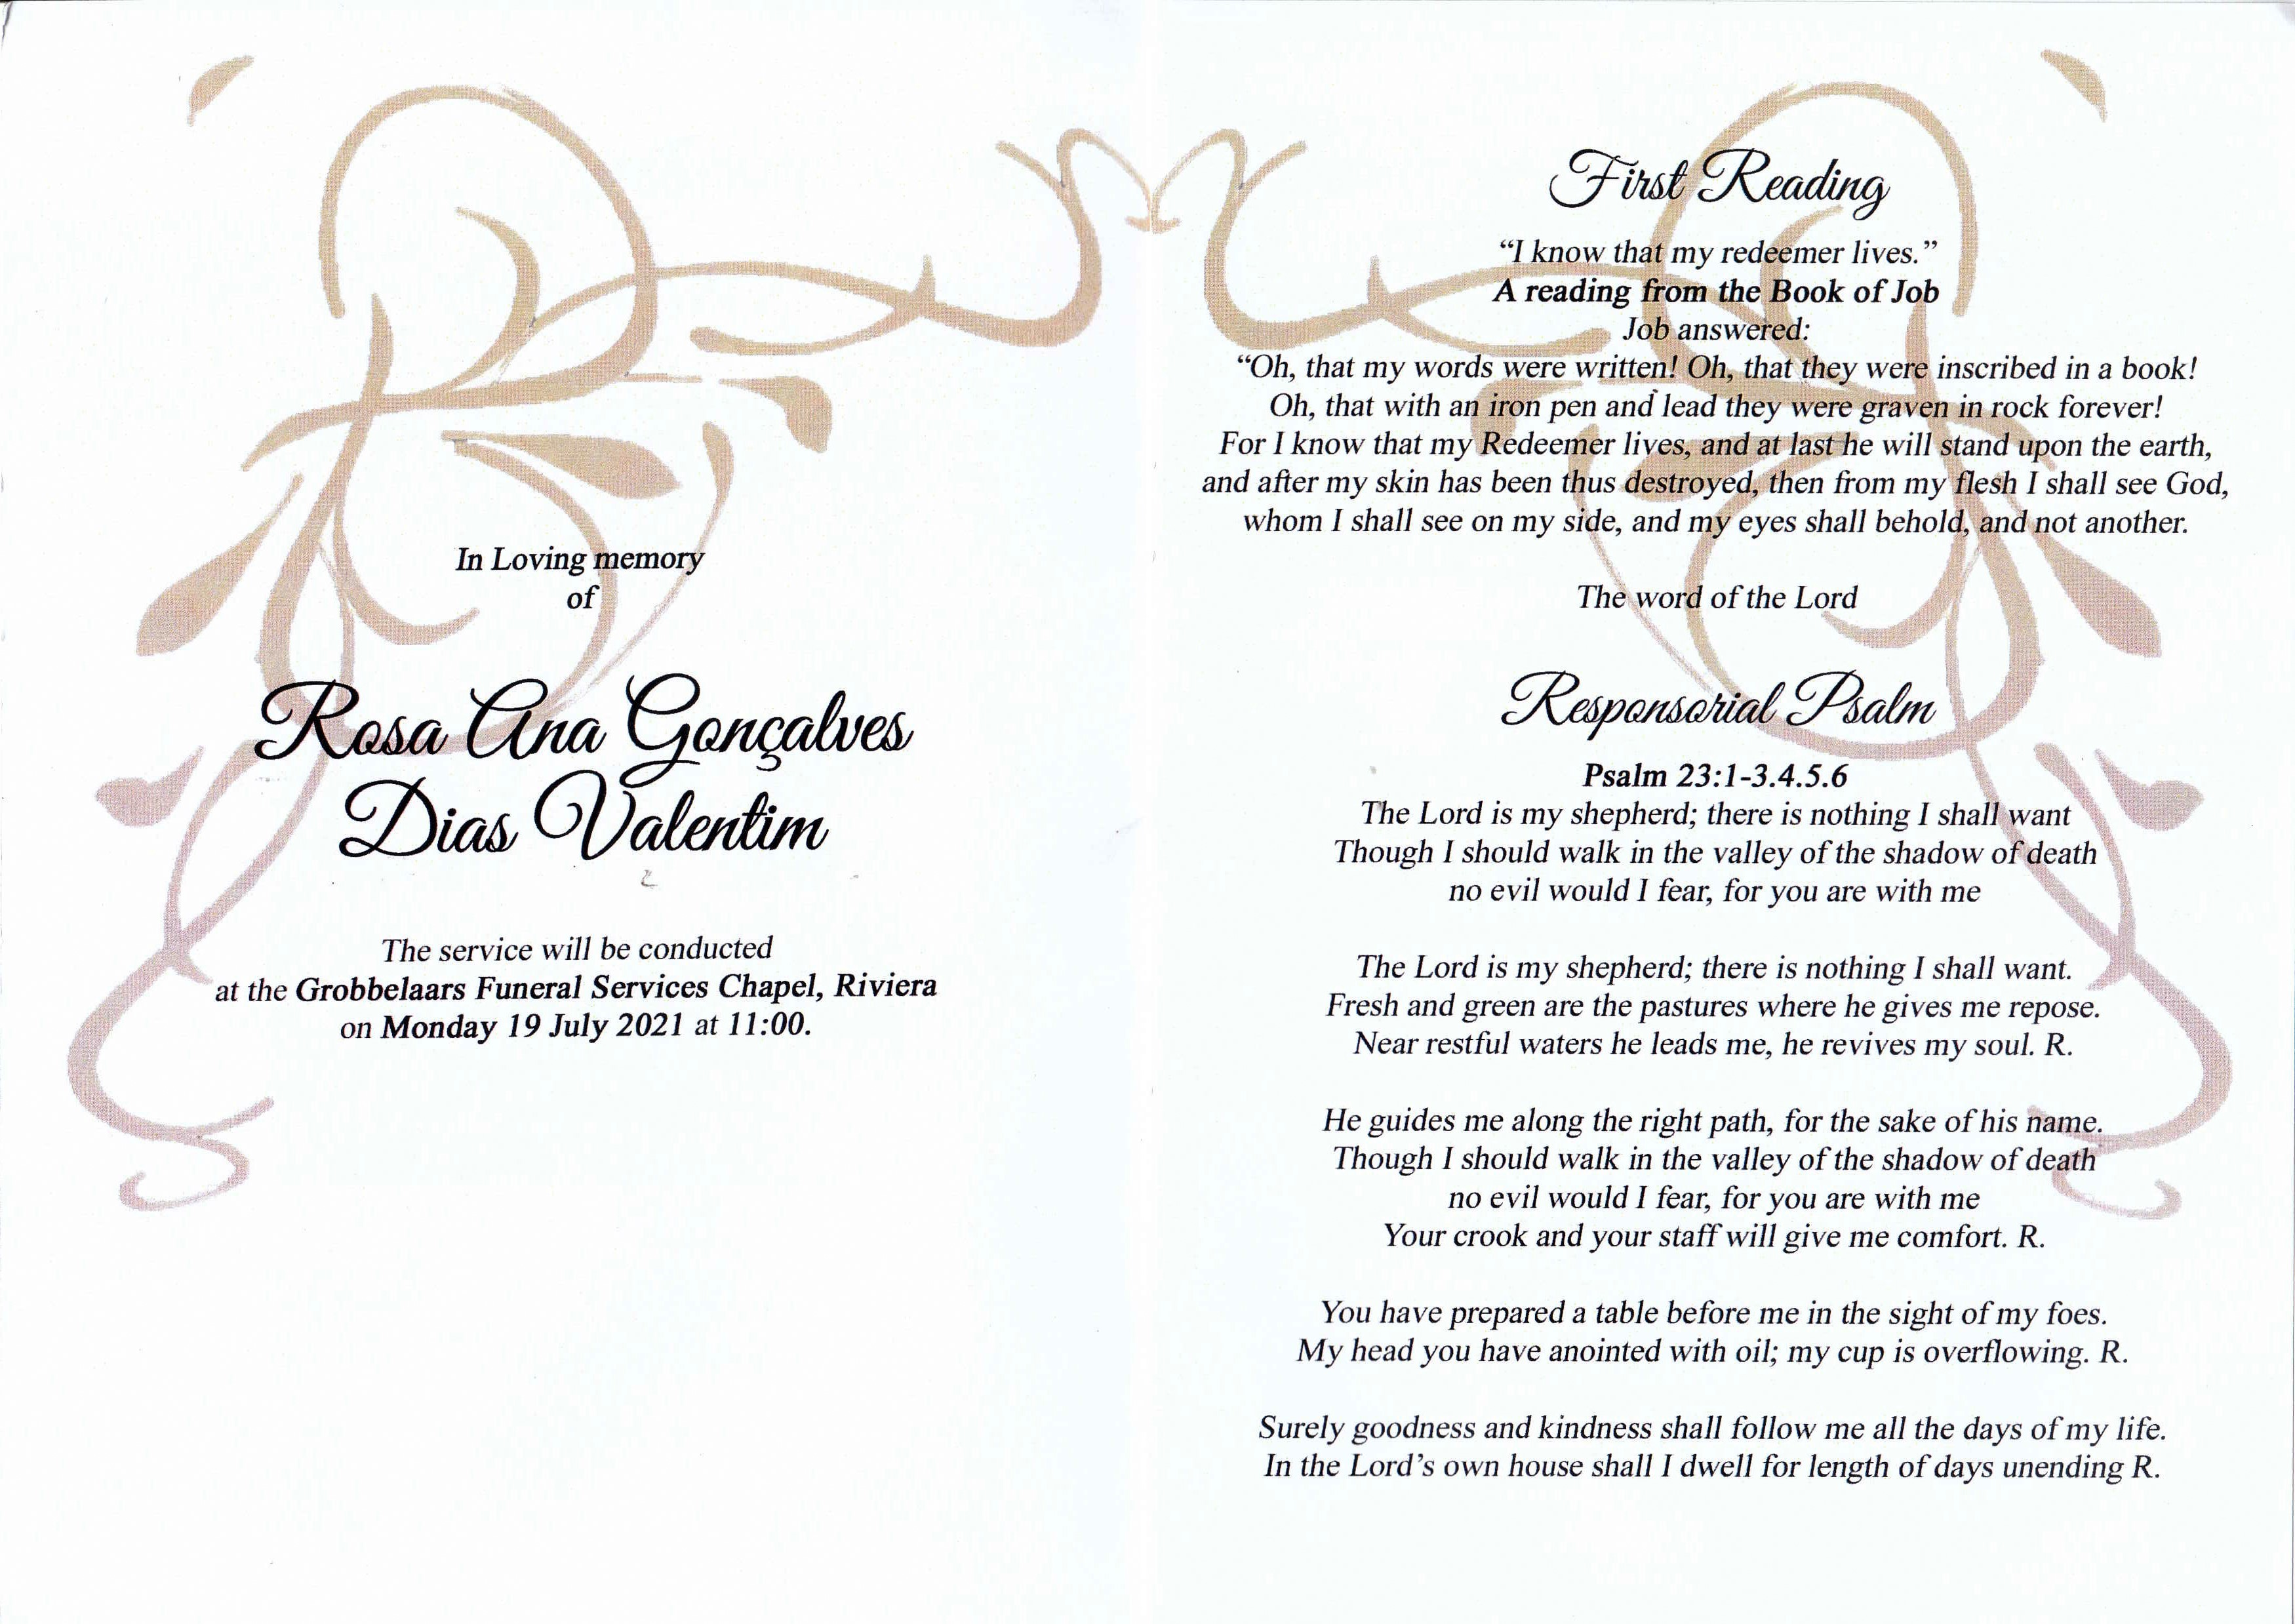 In Loving memory
of
Rosa Ana Gonçalves
Dias Valentim
The service will be conducted
at the Grobbelaars Funeral Services Chapel, Riviera
on Monday 19 July 2021 at 11:00.
First Reading
“I know that my redeemer lives.”
A reading from the Book of Job
Job answered:
“Oh, that my words were written! Oh, that they were inscribed in a book!
Oh, that with an iron pen and lead they were graven in rock forever!
For I know that my Redeemer lives, and at last he will stand upon the earth,
and after my skin has been thus destroyed, then from my flesh I shall see God,
whom I shall see on my side, and my eyes shall behold, and not another.
The word of the Lord
Responsorial Psalm
Psalm 23:1-3.4.5.6
The Lord is my shepherd; there is nothing I shall want
Though I should walk in the valley of the shadow of death
no evil would I fear, for you are with me
The Lord is my shepherd; there is nothing I shall want.
Fresh and green are the pastures where he gives me repose.
Near restful waters he leads me, he revives my soul. R.
He guides me along the right path, for the sake of his name.
Though I should walk in the valley of the shadow of death
no evil would I fear, for you are with me
Your crook and your staff will give me comfort. R.
You have prepared a table before me in the sight of my foes.
My head you have anointed with oil; my cup is overflowing. R.
Surely goodness and kindness shall follow me all the days of my life.
In the Lord’s own house shall I dwell for length of days unending R.